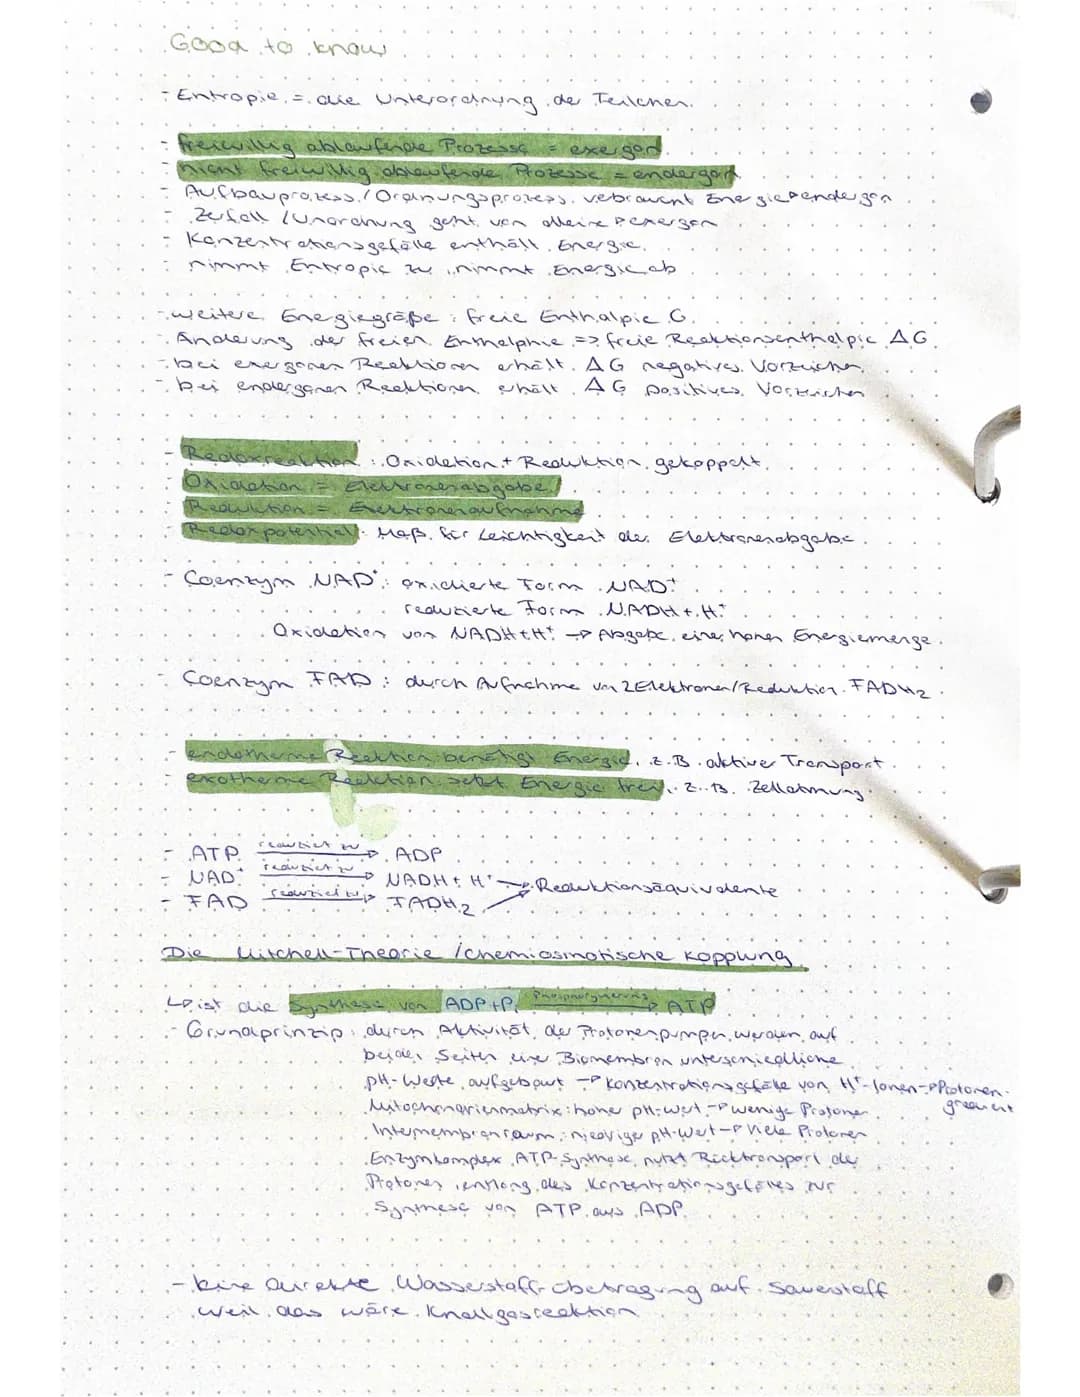 Good to know
- Entropie = die Unterordnung der Teilchen
- freiwillig ablaufende Prozesse = exergon
- nicht freiwillig ablaufende Prozesse = endergon
- Aufbauprozess / Ordnungsprozess verbraucht Energie → endergon
- Zerfall / Unordnung geht von alleine → exergon
- Konzentrationsgefälle enthält Energie
- nimmt Entropie zu, nimmt Energie ab
- weitere Energiegröße: freie Enthalpie G
- Änderung der freien Enthalphie => freie Reaktionsenthalpie ΔG
- bei exergonen Reaktionen erhält ΔG negatives Vorzeichen
- bei endergonen Reaktionen erhält ΔG positives Vorzeichen
- Redoxreaktion: Oxidation + Reduktion gekoppelt
- Oxidation = Elektronenabgabe
- Reduktion = Elektronenaufnahme
- Redoxpotential: Maß für Leichtigkeit der Elektronenabgabe
- Coenzym NAD⁺: oxidierte Form NAD⁺
reduzierte Form NADH + H⁺
Oxidation von NADH + H⁺ → Abgabe einer hohen Energiemenge
- Coenzym FAD: durch Aufnahme von 2 Elektronen/Reduktion FADH₂
- endotherme Reaktion benötigt Energie, z.B. aktiver Transport
- exotherme Reaktion setzt Energie frei, z.B. Zellatmung
- ATP reduziert zu → ADP
- NAD⁺ reduziert zu → NADH + H⁺ → Reduktionsäquivalente
- FAD reduziert zu → FADH₂
Die Mitchell-Theorie / chemiosmotische Kopplung
↳ ist die Synthese von ADP + Pᵢ Phosphorylierung → ATP
- Grundprinzip: durch Aktivität der Protonenpumpen werden auf
beiden Seiten einer Biomembran unterschiedliche
pH-Werte aufgebaut → Konzentrationsgefälle von H⁺-Ionen → Protonen-
gradient
Mitochondrienmatrix: hoher pH-Wert → wenige Protonen
Intermembranraum: niedriger pH-Wert → viele Protonen
Enzymkomplex ATP-Synthase nutzt Rücktransport der
Protonen entlang des Konzentrationsgefälles zur
Synthese von ATP aus ADP
- keine direkte Wasserstoffübetragung auf Sauerstoff
weil das wäre Knallgasreaktion